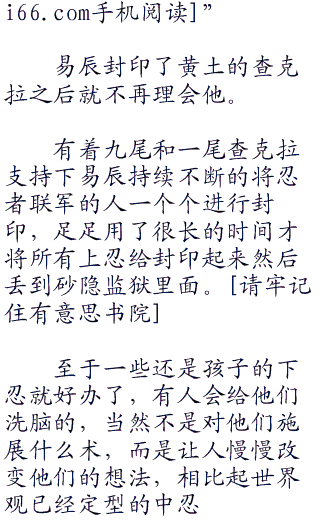 i66.com手机阅读]”
易辰封印了黄土的查克
拉之后就不再理会他。
有着九尾和一尾查克拉
支持下易辰持续不断的将忍
者联军的人一个个进行封
印，足足用了很长的时间才
将所有上忍给封印起来然后
丢到砂隐监狱里面。[请牢记
住有意思书院]
至于一些还是孩子的下
忍就好办了，有人会给他们
洗脑的，当然不是对他们施
展什么术，而是让人慢慢改
变他们的想法，相比起世界
观已经定型的中忍